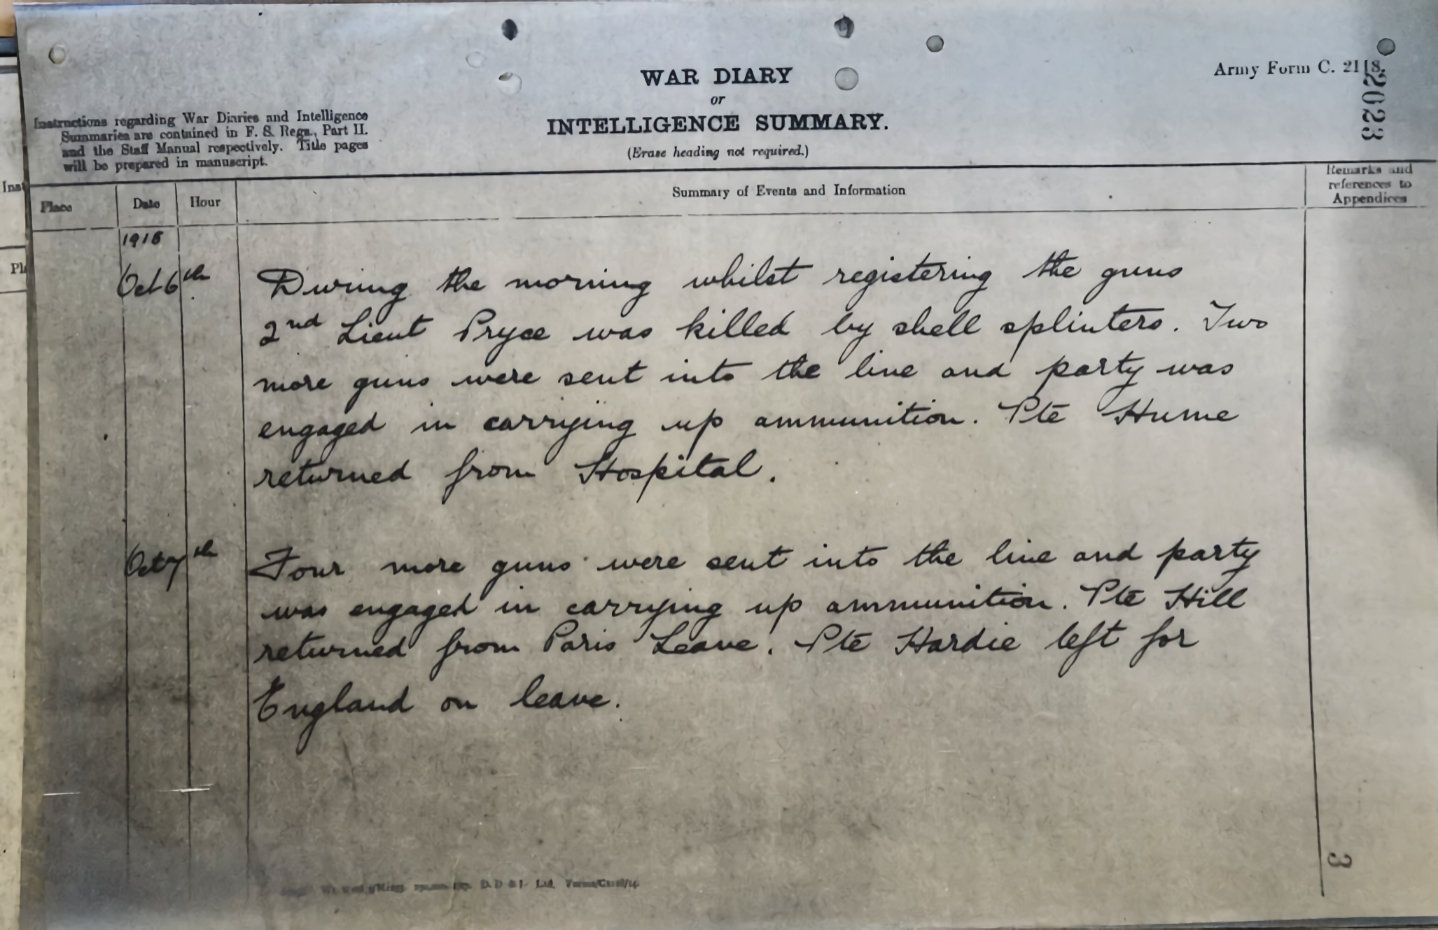 WAR DIARY
or
INTELLIGENCE SUMMARY.
(Erase heading not required.)
Army Form C. 2118.
2023
Instructions regarding War Diaries and Intelligence
Summaries are contained in F. S. Regs., Part II.
and the Staff Manual respectively. Title pages
will be prepared in manuscript.
Place
Date
Hour
Summary of Events and Information
Remarks and
references to
Appendices
Oct 6th
During the morning whilst registering the guns
2nd Lieut Pryce was killed by shell splinters. Two
more guns were sent into the line and party was
engaged in carrying up ammunition. Pte Hume
returned from Hospital.
Oct 7th
Four more guns were sent into the line and party
was engaged in carrying up ammunition. Pte Hill
returned from Paris Leave. Pte Hardie left for
England on leave.
D. D & L Ltd.
3